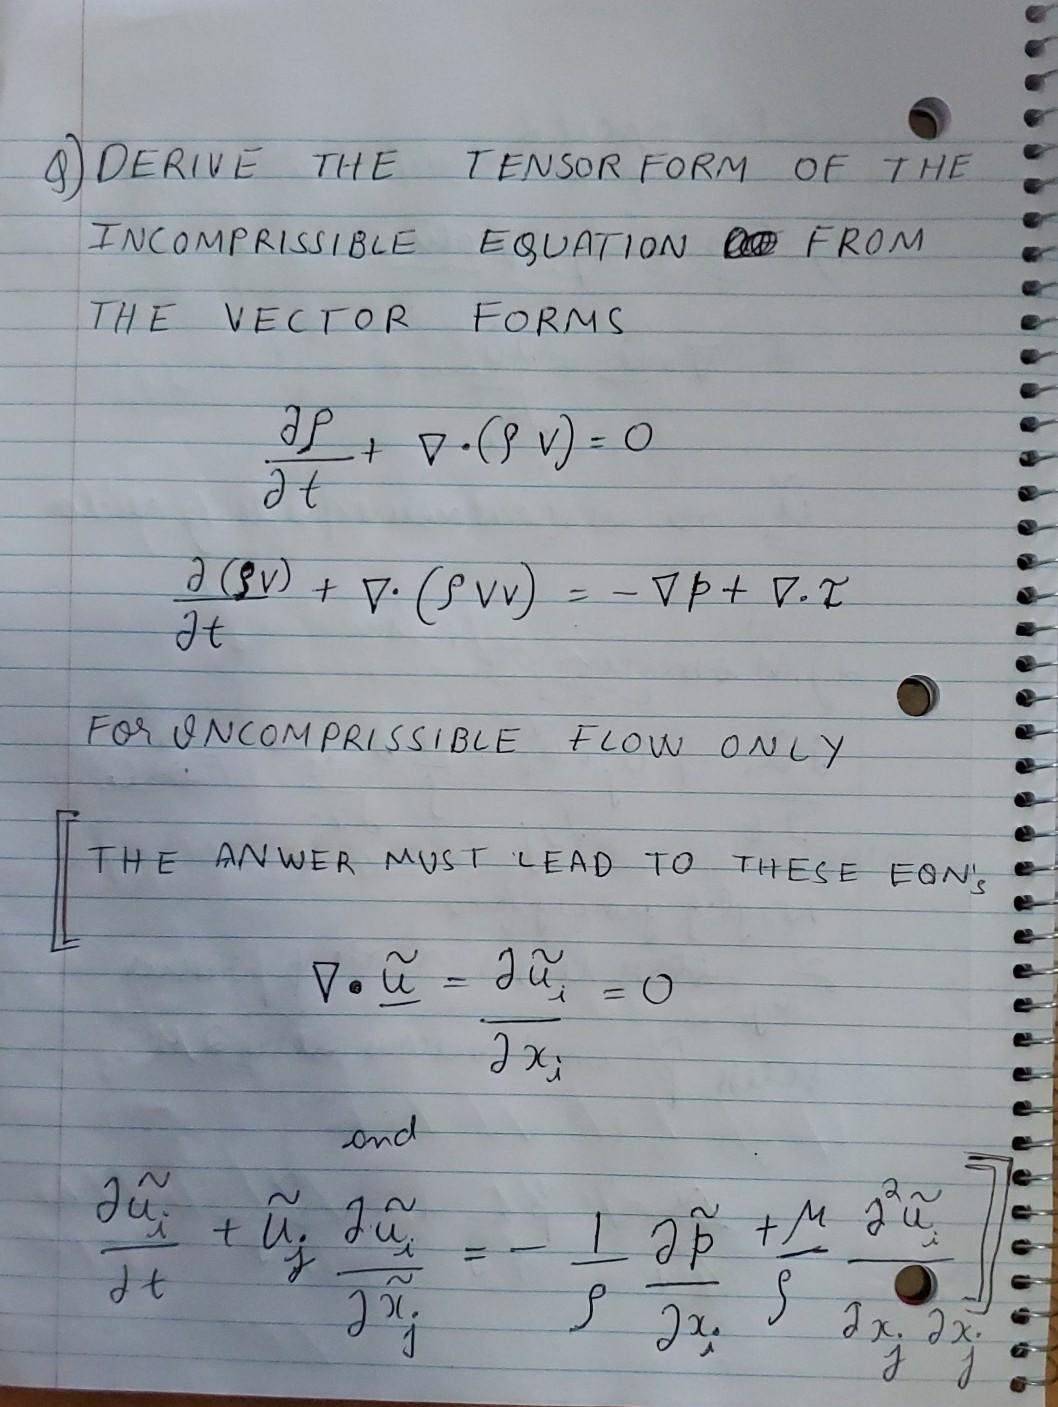 Q) DERIVE THE TENSOR FORM OF THE
INCOMPRISSIBLE EQUATION FROM
THE VECTOR FORMS
∂ρ/∂t + ∇·(ρ V) = 0
∂(ρV)/∂t + ∇·(ρ VV) = -∇p + ∇·τ
FOR INCOMPRISSIBLE FLOW ONLY
[THE ANWER MUST LEAD TO THESE EQN's
∇·ũ = ∂ũᵢ/∂xᵢ = 0
and
∂ũᵢ/∂t + ũⱼ ∂ũᵢ/∂x̃ⱼ = - 1/ρ ∂p̃/∂xᵢ + μ/ρ ∂²ũᵢ/∂xⱼ∂xⱼ]